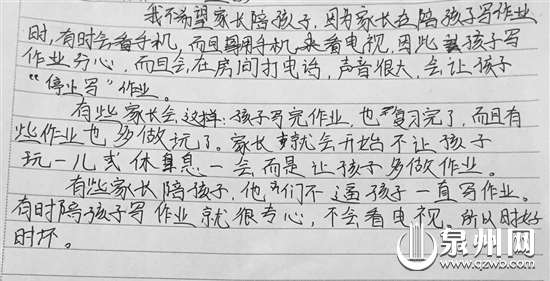 我不希望家长陪孩子，因为家长在陪孩子写作业
时，有时会看手机，而且用手机来看电视，因此孩子写
作业分心，而且会在房间打电话，声音很大，会让孩子
“停止写”作业。
有些家长会这样：孩子写完作业，也复习完了，而且有
些作业也多做玩了。家长就会开始不让孩子
玩一儿或休息一会而是让孩子多做作业。
有些家长陪孩子，他们不逼孩子一直写作业。
有时陪孩子写作业就很专心，不会看电视。所以时好
时坏。
泉州网
www.qzwb.com